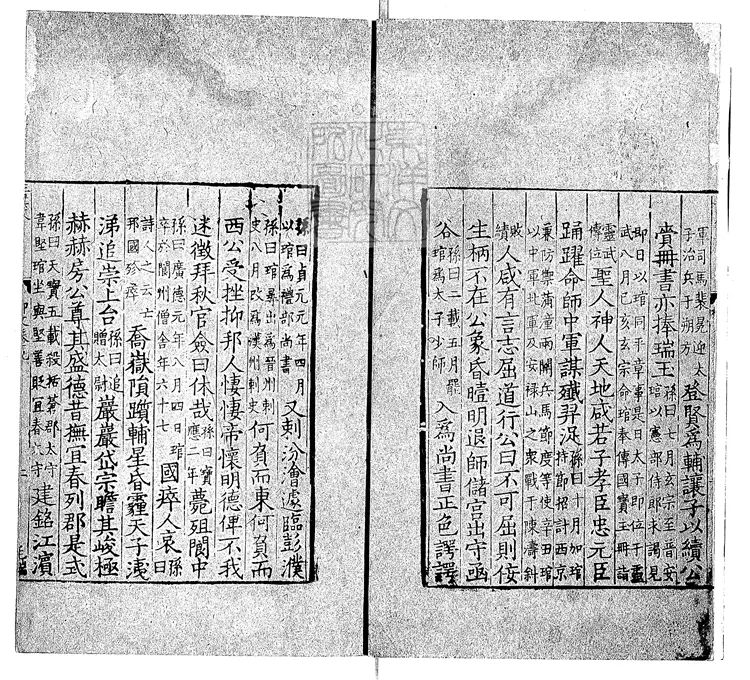 軍司馬裴冕迎太
子治兵于朔方
登賢為輔讓子以續公
賚冊書亦捧瑞玉
孫曰七月玄宗至普安
琯以憲部侍郎來謁見
即日以琯同平章事是日太子即位于靈
武八月己亥玄宗命琯奉傳國寶玉冊詣
靈武
傳位
聖人神人天地咸若子孝臣忠元臣
踊躍命師中軍謀殲羿浞
孫曰十月加琯
持節招討西京
兼防禦蒲潼兩關兵馬節度等使辛丑琯
以中軍北軍及安祿山之衆戰于陳濤斜
敗
績
人咸有言志屈道行公曰不可屈則佞
生柄不在公象昏曀明退師儲宮出守函
谷
孫曰二載五月罷
琯為太子少師
入為尚書正色諤諤
孫曰貞元元年四月
以琯為禮部尚書
又刺汾澮遽臨彭濮
孫曰琯纍出為晉州刺
史八月改為漢州刺史
何負而東何負而
西公受挫抑邦人悽悽帝懷明德俾不我
迷徵拜秋官僉曰休哉
孫曰寶
應二年
薨殂閬中
孫曰廣德元年八月四日琯
卒於閬州僧舍年六十七
國瘁人哀
孫
曰
詩人之云亡
邦國殄瘁
喬嶽隤躓輔星昏霾天子洟
涕追崇上台
孫曰追
贈太尉
巖巖岱宗瞻其峻極
赫赫房公尊其盛德昔撫宜春列郡是式
孫曰天寶五載殺括蒼郡太守
韋堅琯坐與堅善貶宜春太守
建銘江濱